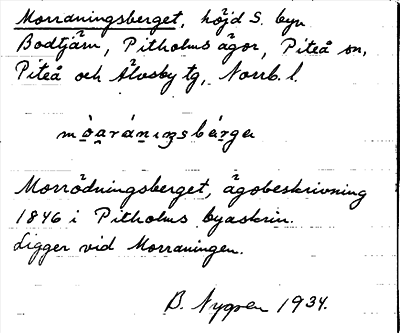 Morraningsberget, höjd S. byn
Bodtjärn, Pitholms ägor, Piteå sn,
Piteå och Älvsby tg, Norrb. l.
Morrödningsberget, ägobeskrivning
1846 i Pitholms byaskrin.
Ligger vid Morraningen.
B. Nygren 1934.